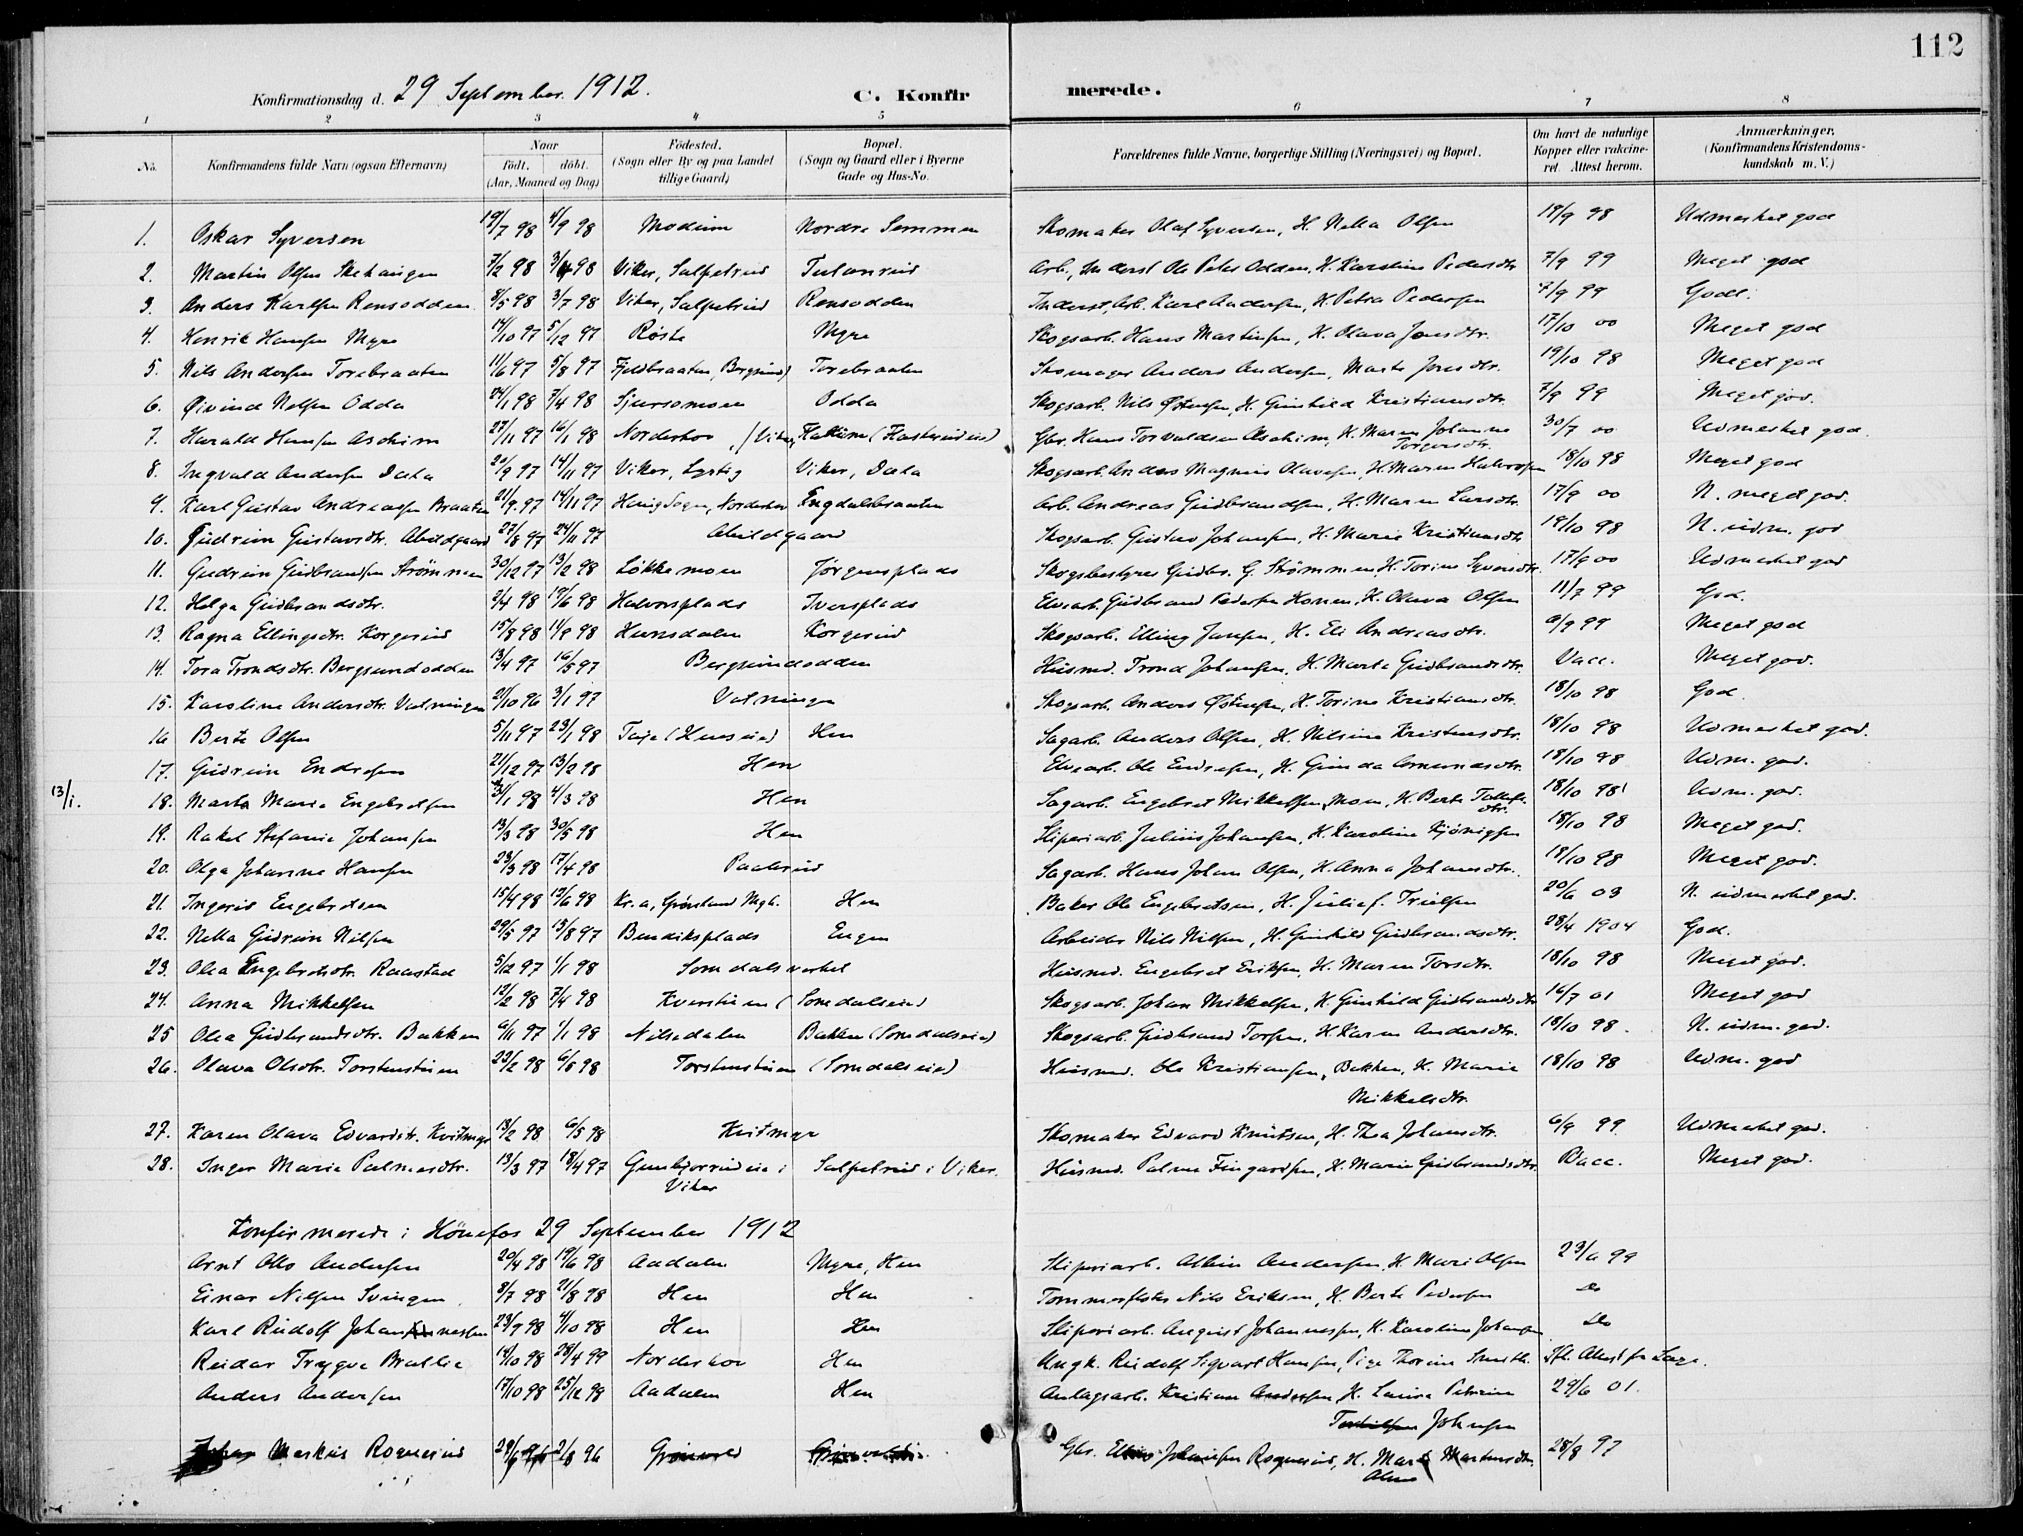 112
Konfirmationsdag d. 29 September 1912.
C. Konfirmerede.
1 2 3 4 5 6 7 8
No. Konfirmandens fulde Navn (ogsaa Efternavn) Naar født, døbt. (Aar, Maaned og Dag) Fødested. (Sogn eller By og paa Landet tillige Gaard) Bopæl. (Sogn og Gaard eller i Byerne Gade og Hus-No. Forældrenes fulde Navne, borgerlige Stilling (Næringsvei) og Bopæl. Om havt de naturlige Kopper eller vakcineret. Attest herom. Anmærkninger. (Konfirmandens Kristendomskundskab m. V.)
1. Oskar Syversen 19/7 98 4/9 98 Modum Nordre Semmen Skomaker Olaf Syversen, H. Nella Olsen 19/9 98 Udmerket god
2. Martin Olsen 7/2 98 98 Viker, Salpeterud Arb., Inderst Ole Peter Odden, H. Karoline Pedersdtr. 7/9 99 Meget god
3. Anders Karlsen Rensodden 8/5 98 3/7 98 Viker, Salpeterud Rensodden Inderst, Arb. Karl Andersen, H. Petra Pedersen 7/9 99 Godt.
4. Henrik Hansen Myre 14/10 97 5/12 97 Røste Myre Skogsarb. Hans Martinsen, H. Olava Jonsdtr. 17/10 00 Meget god
5. Nils Andersen Torebraaten 11/6 97 5/8 97 Fjeldbraaten, Bergsund) Torebraaten Skomager Anders Andersen, Marte Jonsdtr. 19/10 98 Meget god
6. Øivind Nilsen Odda 24/1 98 7/4 98 Sjursomoen Odda Skogsarb. Nils Østensen, H. Gunhild Kristiansdtr. 7/9 99 Meget god.
7. Harald Hansen Aschim 27/11 97 16/1 98 Norderhov Viker, Hallum Gbr. Hans Torvaldsen Aschim, H. Maren Johanne 30/7 00 Udmerket god.
Torgersdtr.
8. Ingvald Andersen Data 20/9 97 14/11 97 Viker, Lyrtig Viker, Data Skogsarb. Anders Magnus Olavesen, H. Maren Halvorsen 18/10 98 Meget god
9. Karl Gustav Andreassen Braaten 21/9 97 14/11 97 Haug Sogn, Norderhov Engdalsbraaten Arb. Andreas Gudbrandsen, H. Maren Larsdtr. 17/9 00 N. meget god.
10. Gudrun Gustavsdtr. Abildgaard 27/8 97 24/11 97 Abildgaard Skogsarb. Gustav Johansen, H. Marie Kristiansdtr. 19/10 98 N. udm. god
11. Gudrun Gudbrandsen Strømmen 30/12 97 13/2 98 Løkkemoen Jørgensplads Skogsbestyrer Gudbr. G. Strømmen, H. Torine Syversdtr. 17/9 00 Udmerket god
12. Helga Gudbrandsdtr. 2/4 98 19/6 98 Halvorsplads Iversplads Elvearb. Gudbrand Pedersen Honen, H. Olava Olsen 11/7 99 God.
13. Ragna Ellingsdtr. Korgerud 15/8 98 14/9 98 Hunsdalen Korgerud Skogsarb. Elling Jensen, H. Eli Andreasdtr. 9/9 99 Meget god
14. Tora Trondsdtr. Bergsundodden 13/4 97 16/5 97 Bergsundodden Husmd. Trond Johansen, H. Marte Gudbrandsdtr. Vacc. Meget god.
15. Karoline Andersdtr. Vatningen 21/10 96 3/1 97 Vatningen Skogsarb. Anders Østensen, H. Torine Kristiansdtr. 18/10 98 God.
16 Berte Olsen 5/11 97 23/1 98 Hen Sagarb. Anders Olsen, H. Nilsine Kristensdtr. 18/10 98 Udmerket god.
17. Gudrun Endresen 21/12 97 13/2 98 Hen Elvearb. Ole Endresen, H. Gunda 18/10 98 Udm. god.
13/1. 18. Marta Marie Engebretsen 31/1 98 4/3 98 Hen Sagarb. Engebret Mikkelsen Moen, H. Berte Tollefs- 18/10 98 Udm. god.
dtr.
19. Rakel Stefanie Johansen 13/3 98 30/5 98 Hen Sliperiarb. Julius Johansen, H. Karoline 18/10 98 Meget god.
20. Olga Johanne Hansen 23/3 98 17/4 98 Paalerud Sagarb. Hans Johan Olsen, H. Anna Johansdtr. 18/10 98 Meget god.
21. Ingerid Engebretsen 15/4 98 12/6 98 Kr.a, Grønland Mgh. Hen Baker Ole Engebretsen, H. 20/6 03 N. udmerket god.
22. Nella Gudrun Nilsen 29/5 97 15/8 97 Bendiksplads Engen Arbeider Nils Nilsen, H. Gunhild Gudbrandsdtr. 28/4 1904 God.
23. Olea Engebretsdtr. Raastad 5/12 97 1/1 98 Somdalsverket Husmd. Engebret Eriksen, H. Maren Torsdtr. 18/10 98 Meget god.
24. Anna Mikkelsen 12/2 98 7/4 98 Kverstuen (Somdalseie) Skogsarb. Johan Mikkelsen, H. Gunhild Gudbrandsdtr. 16/7 01 Meget god
25 Olea Gudbrandsdtr. Bakken 6/11 97 1/1 98 Nilsedalen Bakken (Somdalseie) Skogsarb. Gudbrand Torsen, H. Karen Andersdtr. 18/10 98. N. udm. god.
26. Olava Olsdtr. Torstenstuen 22/2 98 6/5 98 Torstenstuen (Somdalseie) Husmd. Ole Kristiansen, Bakken, H. Marie 18/10 98 Udm. god
Mikkelsdtr.
27. Karen Olava Edvardsdtr. Kvitmyr 13/2 98 6/5 98 Kvitmyr Skomaker Edvard Knutsen, H. Thea Johansdtr. 6/9 99 Udmerket god.
28. Inger Marie Palmersdtr. 13/3 97 18/4 97 Gunbjorrudeie i Salpeterud i Viker. Husmd. Palme Fingardsen, H. Marie Gudbrandsdtr. Vacc. Meget god.
Viker
Konfirmerede i Hönefos 29 September 1912
Arnt Otto Andersen 20/4 98 19/6 98 Aadalen Myre, Hen Sliperiarb. Albin Andersen, H. Mari Olsen 23/9 99
Einar Nilsen Svingen 8/7 98 21/8 98 Hen Hen Tømmerfløter Nils Eriksen, H. Berte Pedersen Do
Karl Rudolf Johannessen 23/9 98 4/10 98 Hen Hen Sliperiarb. August Johannessen, H. Karoline Johansen Do
Reidar Trygve Brattlie 14/10 98 28/4 99 Norderhov Hen Ungk. Rudolf Sigvart Hansen, Pige Thorine Smith. Ifl. Attest fra Læge.
Anders Andersen 17/10 98 25/12 98 Aadalen Hen Anlagsarb. Kristian Andersen, H. Laura Petrine 29/6 01.
Johnsen
Johan Markus Rognerud 96 Grønvold Gbr. Johansen Rognerud, H. Mar Martinsdtr. 28/8 97